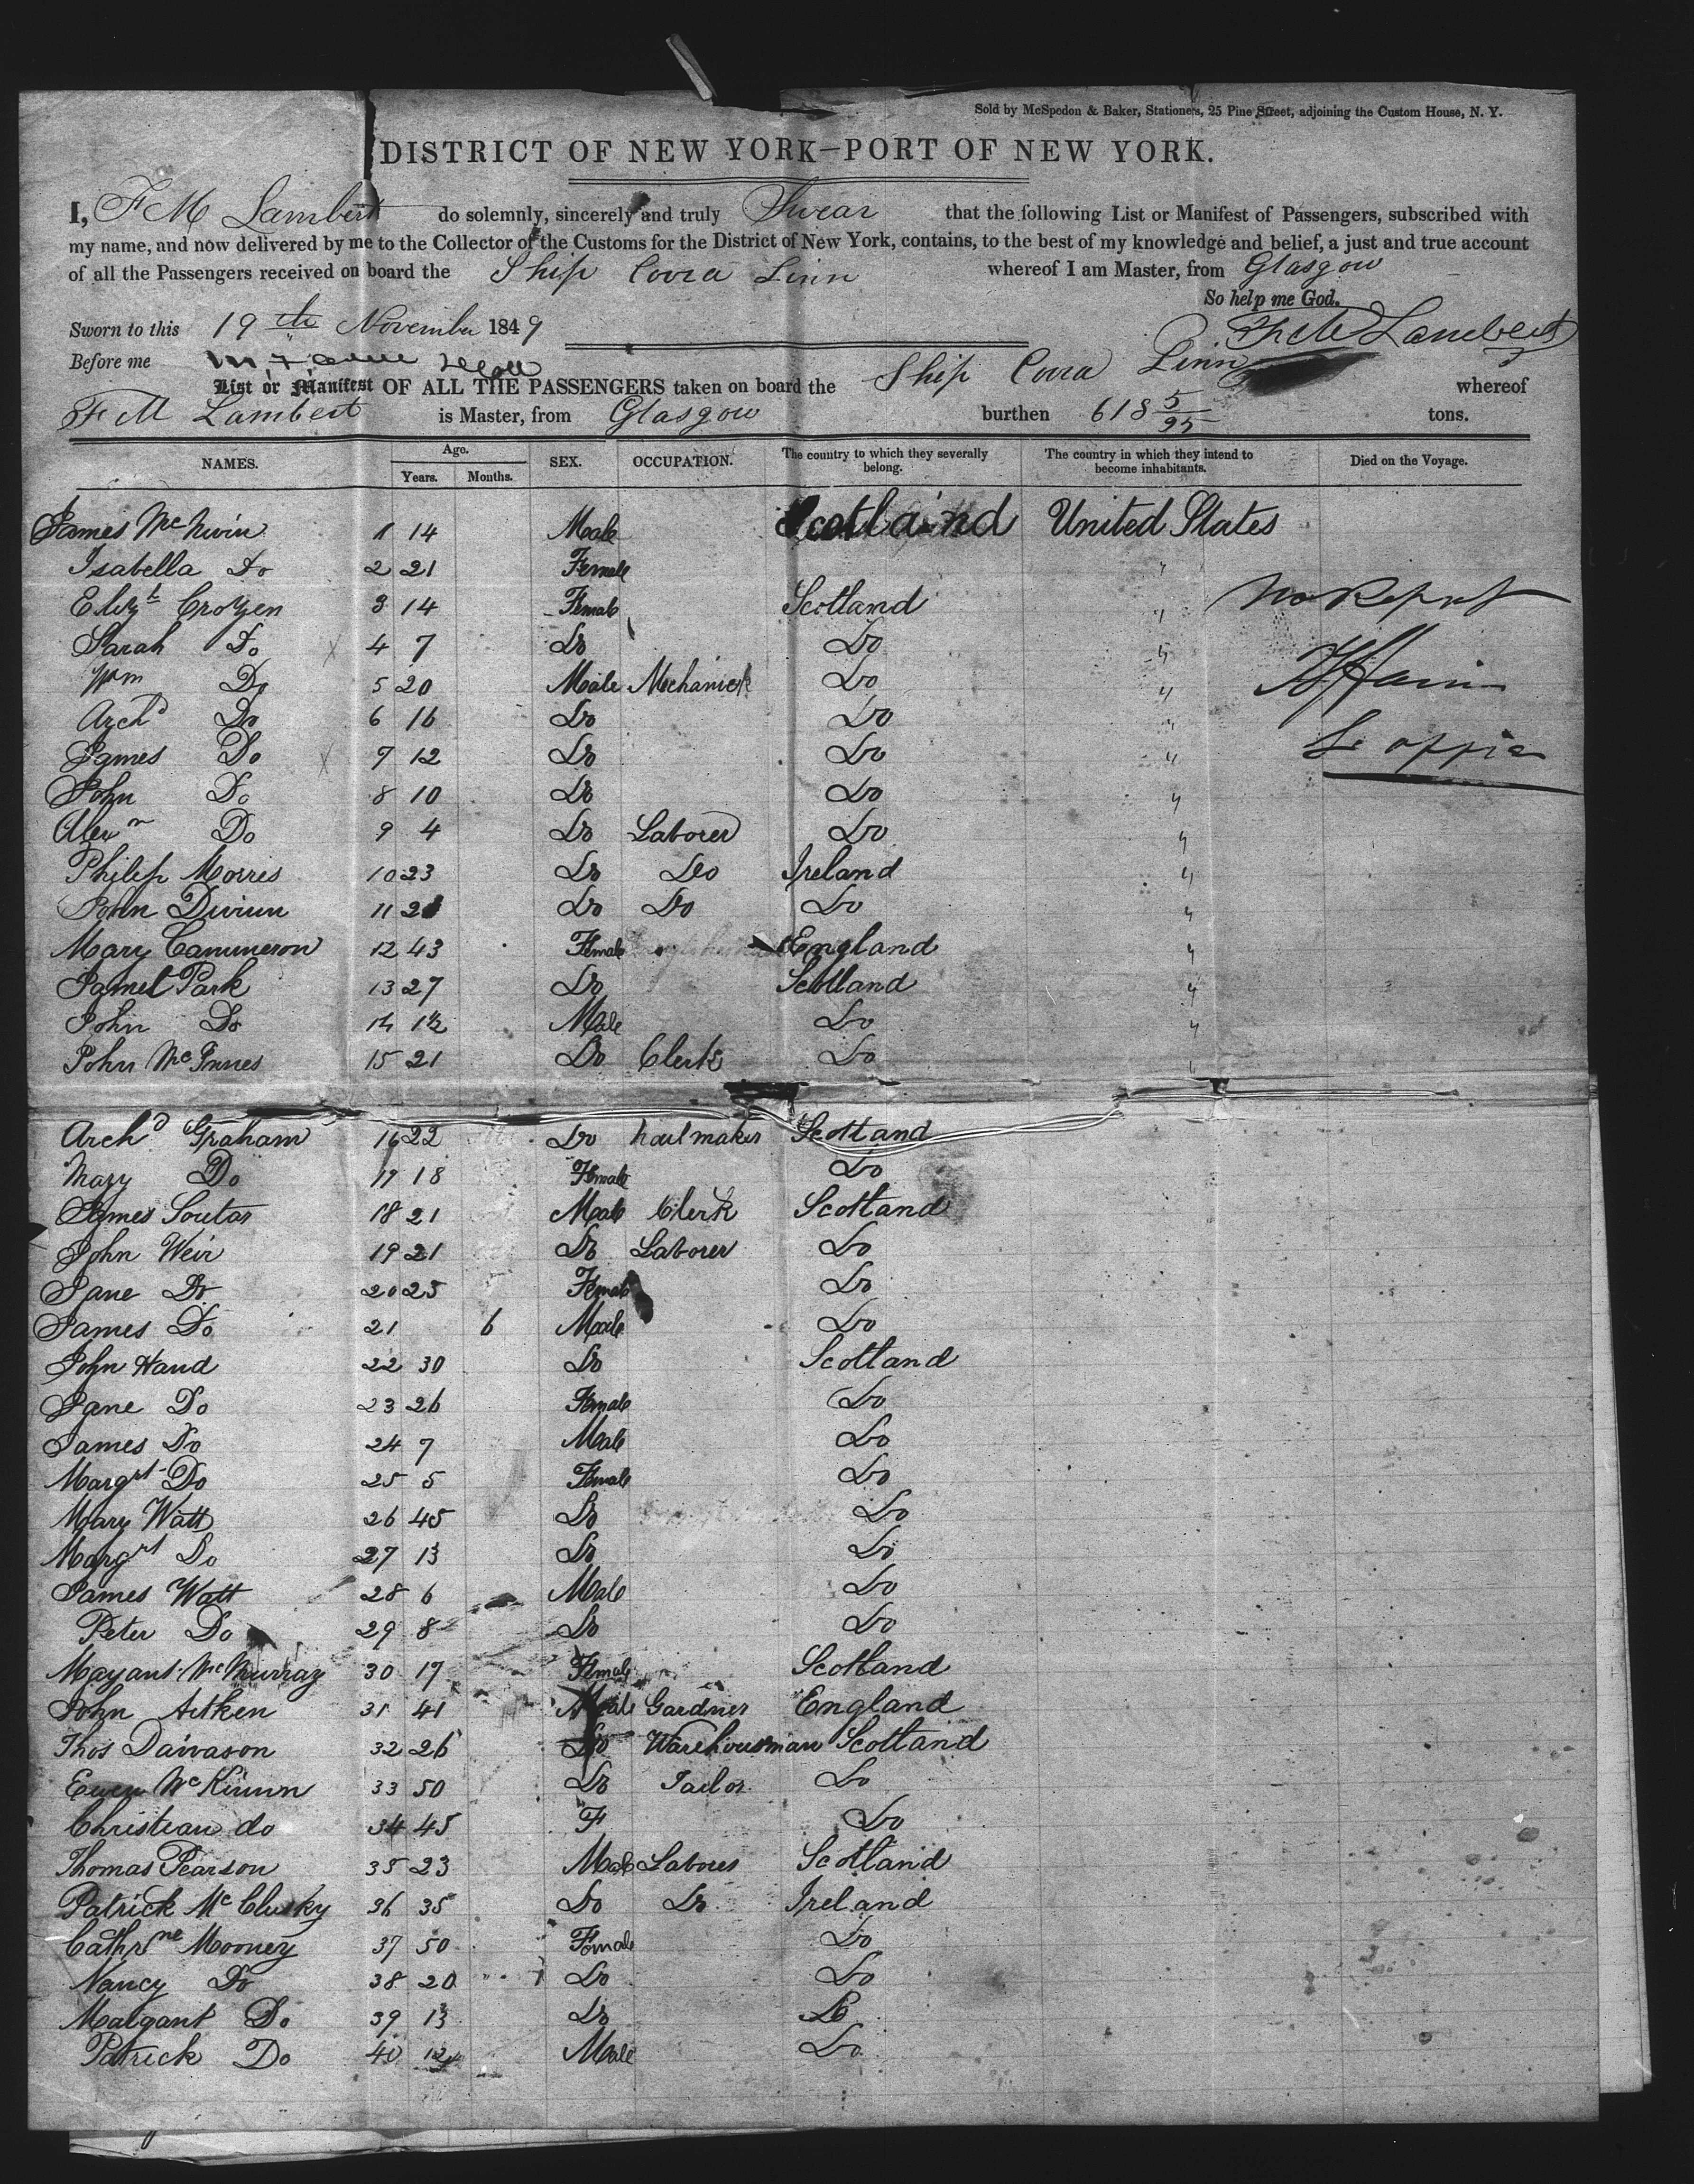 Sold by McSpedon & Baker, Stationers, 25 Pine Street, adjoining the Custom House, N. Y.
DISTRICT OF NEW YORK—PORT OF NEW YORK.
I, F M Lambert do solemnly, sincerely and truly Swear that the following List or Manifest of Passengers, subscribed with
my name, and now delivered by me to the Collector of the Customs for the District of New York, contains, to the best of my knowledge and belief, a just and true account
of all the Passengers received on board the Ship Cora Linn whereof I am Master, from Glasgow
So help me God.
Sworn to this 19th November 1849
F M Lambert
Before me
List or Manifest OF ALL THE PASSENGERS taken on board the Ship Cora Linn whereof
F M Lambert is Master, from Glasgow burthen 618 5/95 tons.
NAMES. Age. Years. Months. SEX. OCCUPATION. The country to which they severally belong. The country in which they intend to become inhabitants. Died on the Voyage.
James McNivin 1 14 Male Scotland United States
Isabella Do 2 21 Female "
Elizth Crozen 3 14 Female Scotland " No Report
Sarah Do 4 7 Do Do "
Wm Do 5 20 Male Mechanick Do "
Archd Do 6 16 Do Do "
James Do 7 12 Do Do "
John Do 8 10 Do Do "
Alexr Do 9 4 Do Laborer Do "
Philip Morris 10 23 Do Do Ireland "
John Divinn 11 Do Do Do "
Mary Cammeron 12 43 Female England "
Janet Park 13 27 Do Scotland "
John Do 14 1½ Male Do "
John McInnes 15 21 Do Clerk Do "
Archd Graham 16 22 Do nailmaker Scotland
Mary Do 17 18 Female Do
James Soutar 18 21 Male Clerk Scotland
John Weir 19 21 Do Laborer Do
Jane Do 20 25 Female Do
James Do 21 6 Male Do
John Hand 22 30 Do Scotland
Jane Do 23 26 Female Do
James Do 24 7 Male Do
Margrt Do 25 5 Female Do
Mary Watt 26 45 Do Do
Margrt Do 27 13 Do Do
James Watt 28 6 Male Do
Peter Do 29 8 Do Do
McMurray 30 17 Female Scotland
John Aitken 31 41 Male Gardner England
Thos Davason 32 26 Do Warehousman Scotland
Ewen McKinnn 33 50 Do Tailor Do
Christian do 34 45 F Do
Thomas Pearson 35 23 Male Laborer Scotland
Patrick McClusky 36 35 Do Do Ireland
Cathrne Mooney 37 50 Female Do
Nancy Do 38 20 Do Do
Margant Do 39 13 Do Do
Patrick Do 40 12 Male Do